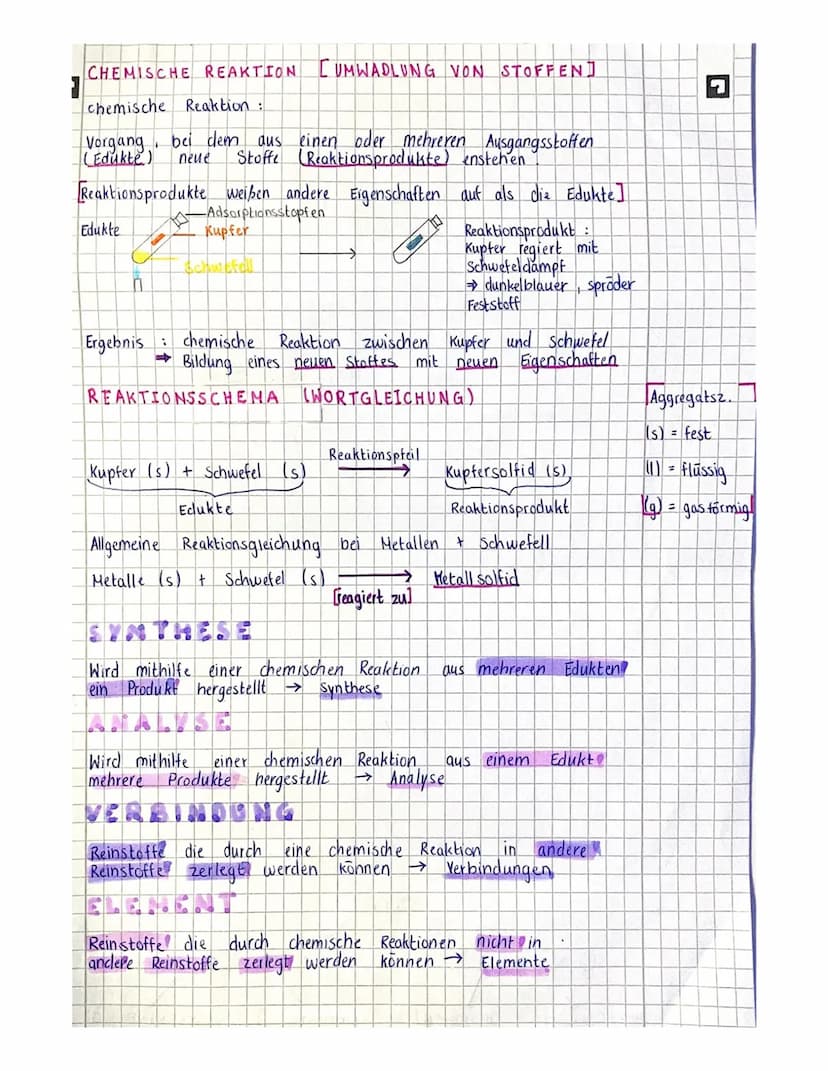 CHEMISCHE REAKTION [UMWADLUNG VON STOFFEN]
chemische Reaktion :
Vorgang, bei dem aus einen oder mehreren Ausgangsstoffen
(Edukte) neue Stoffe (Reaktionsprodukte) enstehen.
[Reaktionsprodukte weißen andere Eigenschaften auf als die Edukte]
Adsorptionsstopfen
Edukte
Kupfer
Schwefell
Reaktionsprodukt :
Kupfer regiert mit
Schwefeldampf
⇒ dunkelblauer, spröder
Feststoff
Ergebnis : chemische Reaktion zwischen Kupfer und Schwefel
⇒ Bildung eines neuen Stoffes mit neuen Eigenschaften
REAKTIONSSCHEMA (WORTGLEICHUNG)
[Aggregatsz.]
(s) = fest
(l) = flüssig
(g) = gasförmig
Reaktionspfeil
Kupfer (s) + Schwefel (s) → Kupfersolfid (s)
Edukte Reaktionsprodukt
Allgemeine Reaktionsgleichung bei Metallen + Schwefell
Metalle (s) + Schwefel (s) → Metallsolfid
[reagiert zu]
SYNTHESE
Wird mithilfe einer chemischen Reaktion aus mehreren Edukten
ein Produkt hergestellt → Synthese
ANALYSE
Wird mithilfe einer chemischen Reaktion aus einem Edukt
mehrere Produkte hergestellt → Analyse
VERBINDUNG
Reinstoffe die durch eine chemische Reaktion in andere
Reinstoffe zerlegt werden können → Verbindungen
ELEMENT
Reinstoffe die durch chemische Reaktionen nicht in
andere Reinstoffe zerlegt werden können → Elemente